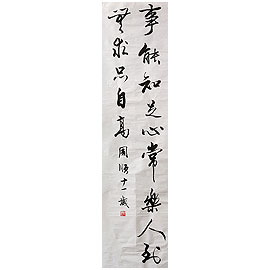 事能知足心常樂人到
無求品自高 周順十一歲